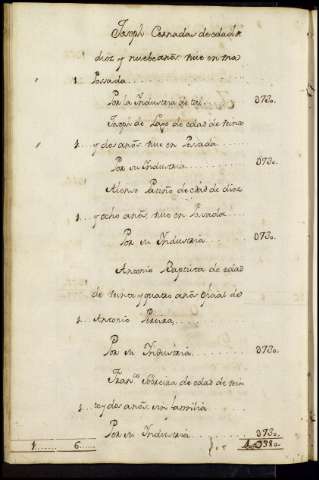 Joseph Cernadas de edad de
diez y nuebe años vive en una
1. Possada
Por la Industria de tal 0730.
Joseph de Lago de edad de treinta
1. y dos años vive en Possada
Por su Industria 0730.
Alonso Patiño de edad de diez
1. y ocho años vive en Posada
Por su Industria 0730.
Antonio Baptista de edad
de treinta y quatro años
1. Antonio Pereira
Por su Industria 0730.
Fran.co de edad de
1. te y dos años en familia
Por su Industria 0730.
6